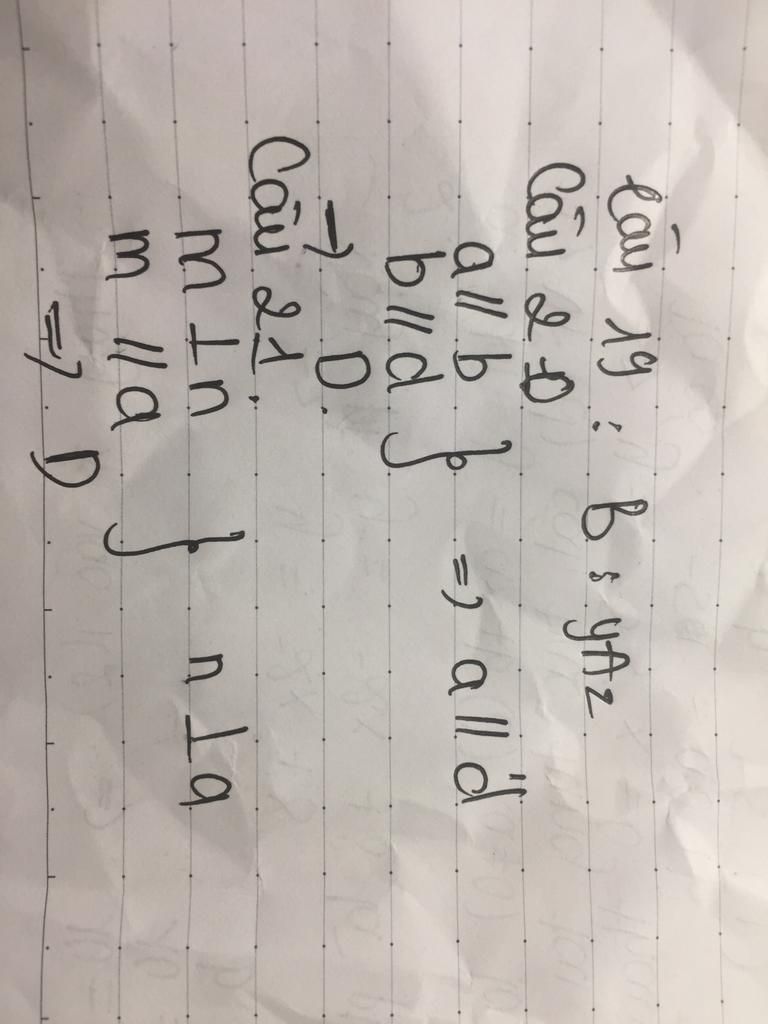 Câu 19 : B : yAz
Câu 20
a // b
b // d } => a // d
→ D.
Câu 21.
m ⊥ n
m // a } n ⊥ a
=> D